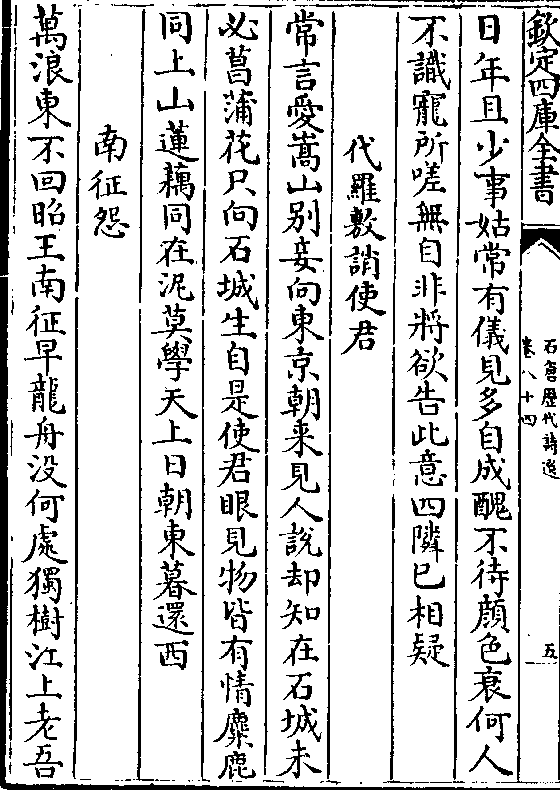 欽定四庫全書
石倉歷代詩選
卷八十四
五
日年且少事姑常有儀見多自成醜不待顔色衰何人
不識寵所嗟無自非將欲告此意四隣已相疑
代羅敷誚使君
常言愛嵩山别妾向東京朝来見人說却知在石城未
必菖蒲花只向石城生自是使君眼見物皆有情麋鹿
同上山蓮藕同在泥莫學天上日朝東暮還西
南征怨
萬浪東不回昭王南征早龍舟没何處獨樹江上老吾